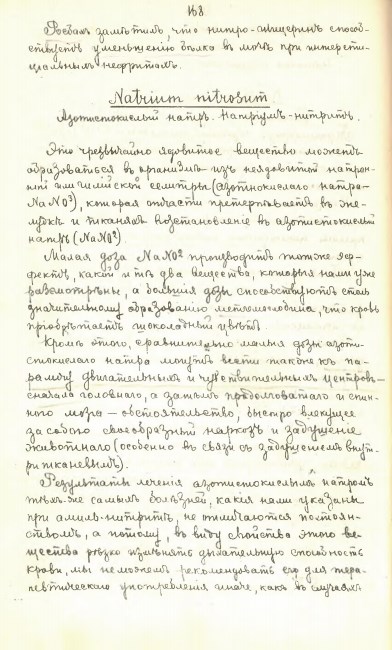 168
Россбахъ замѣтилъ, что нитро-глицеринъ способ-
ствуетъ уменьшенію бѣлка въ мочѣ при интерсти-
ціальныхъ нефритахъ.
Natrium nitrosum.
Азотистокислый натръ. Натріумъ-нитритъ.
Это чрезвычайно ядовитое вещество можетъ
образоваться въ организмѣ изъ неядовитой натрон-
ной или чилійской селитры (азотнокислаго натра-
NaNO3), которая отчасти претерпѣваетъ въ же-
лудкѣ и тканяхъ возстановленіе въ азотистокислый
натръ (NaNO2)
Малая доза NaNO2 производитъ тотъ же эф-
фектъ, какой и тѣ два вещества, которыя нами уже
разсмотрѣны, а большія дозы способствуютъ столь
значительному образованію метгемоглобина, что кровь
пріобрѣтаетъ шоколадный цвѣтъ.
Кромѣ этого, сравнительно малыя дозы азоти-
стокислаго натра могутъ вести также къ па-
раличу двигательныхъ и чувствительныхъ центровъ-
сначала головного, а затѣмъ продолговатаго и спин-
ного мозга — обстоятельство, быстро влекущее
за собою своеобразный наркозъ и задушеніе
животнаго (особенно въ связи съ задушеніемъ внут-
ри тканевымъ).
Результаты леченія азотистокислымъ натромъ
тѣхъ-же самыхъ болѣзней, какія нами указаны
при амилъ-нитритѣ, не отличаются постоян-
ствомъ, а потому, въ виду свойства этого ве-
щества рѣзко измѣнять дыхательную способность
крови, мы не можемъ рекомендовать его для тера-
певтическаго употребленія иначе, какъ въ случаяхъ